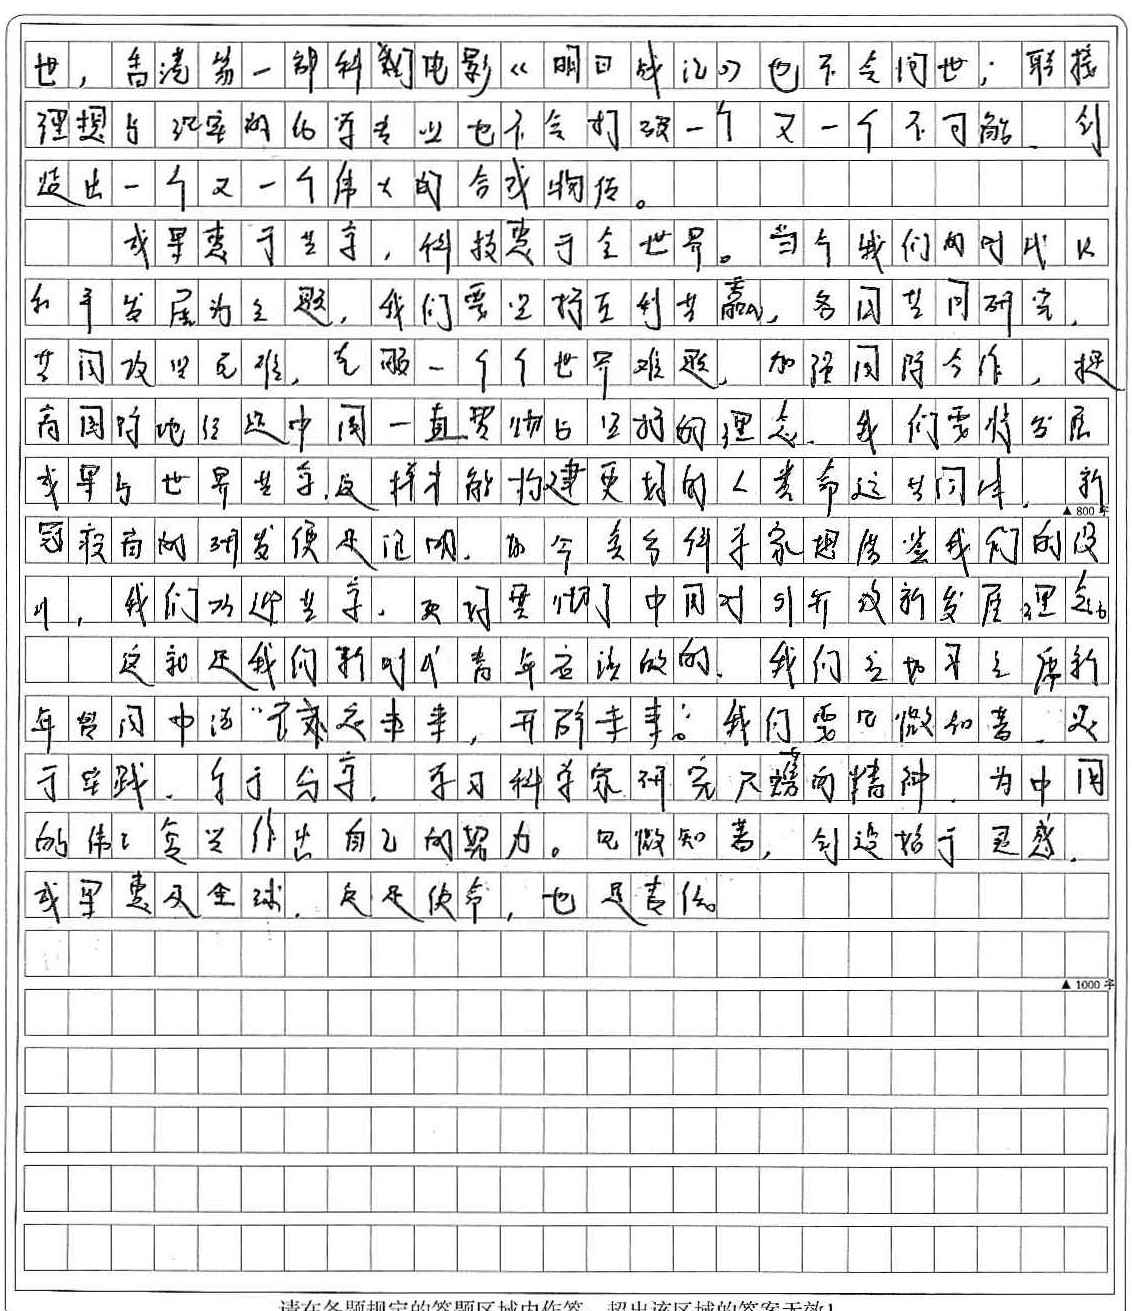 世，香港第一部科幻电影《明日战记》也不会问世；联接
理想与现实的化学专业也不会打破一个又一个不可能、创
造出一个又一个伟大的合成物质。
成果惠于共享，科技惠于全世界。当今我们的时代以
和平发展为主题，我们要坚持互利共赢，各国共同研究，
共同攻坚克难，克服一个个世界难题，加强国际合作，提
高国际地位是中国一直贯彻与坚持的理念、我们要将发展
成果与世界共享，这样才能构建更好的人类命运共同体，新
冠疫苗的研发便是证明，如今多方科学家想借鉴我们的设
计，我们乐迎共享，更好贯彻了中国对外开放新发展理念。
这就是我们新时代青年应该做的、我们应切习主席新
年贺词中活“ 未来，开辟未来”。我们要见微知著、
于实践、乐于分享，学习科学家研究尺蠖的精神，为中国
的伟大复兴作出自己的努力。见微知著，创造始于灵感，
成果惠及全球，这是使命，也是责任。
▲ 800 字
▲ 1000 字
请在各题规定的答题区域内作答，超出该区域的答案无效！